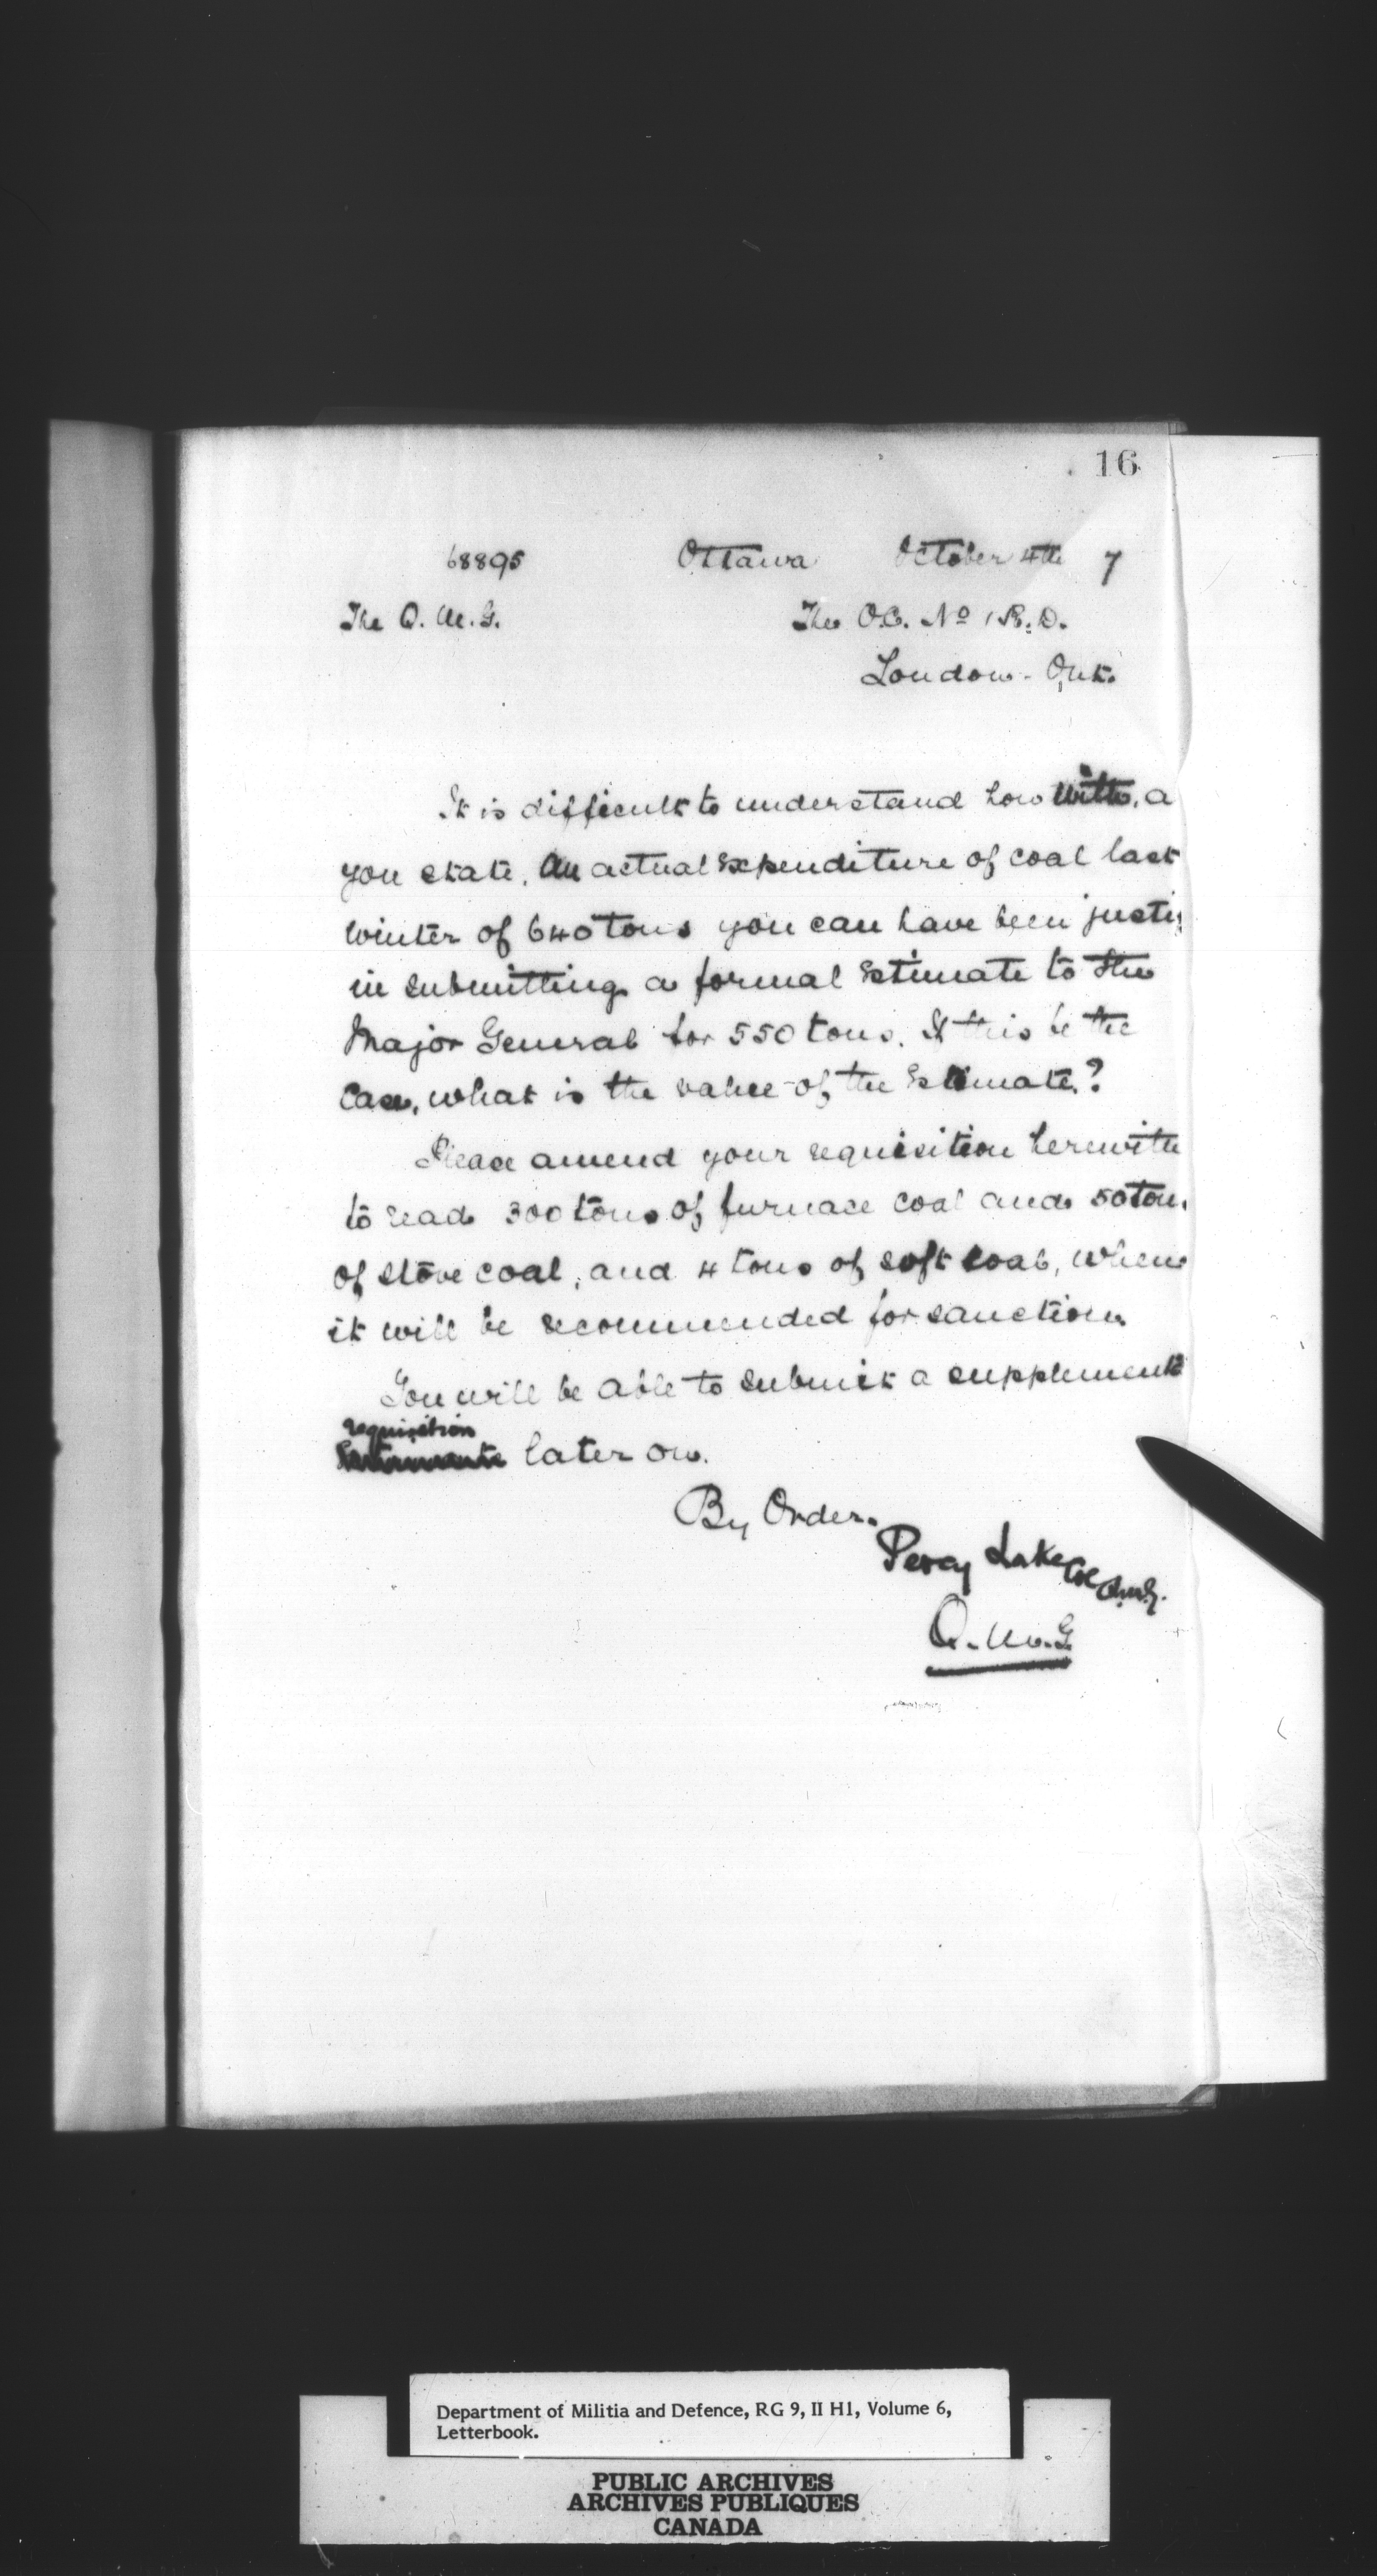 16
68895 Ottawa October 4th 7
The Q. M. G. The O.C. No 1 R. D.
London - Ont.
It is difficult to understand how with, a
you state, an actual expenditure of coal last
winter of 640 tons you can have been justi
in submitting a formal Estimate to the
Major General for 550 tons. If this be the
Case, what is the value of the Estimate?
Please amend your requisition herewith
to read 300 tons of furnace coal and 50 tons
of stove coal, and 4 tons of soft coal, when
it will be recommended for sanction.
You will be able to submit a supplement
requisition
later on.
By Order.
Percy Lake Col
Q. M. G.
Department of Militia and Defence, RG 9, II H1, Volume 6,
Letterbook.
PUBLIC ARCHIVES
ARCHIVES PUBLIQUES
CANADA